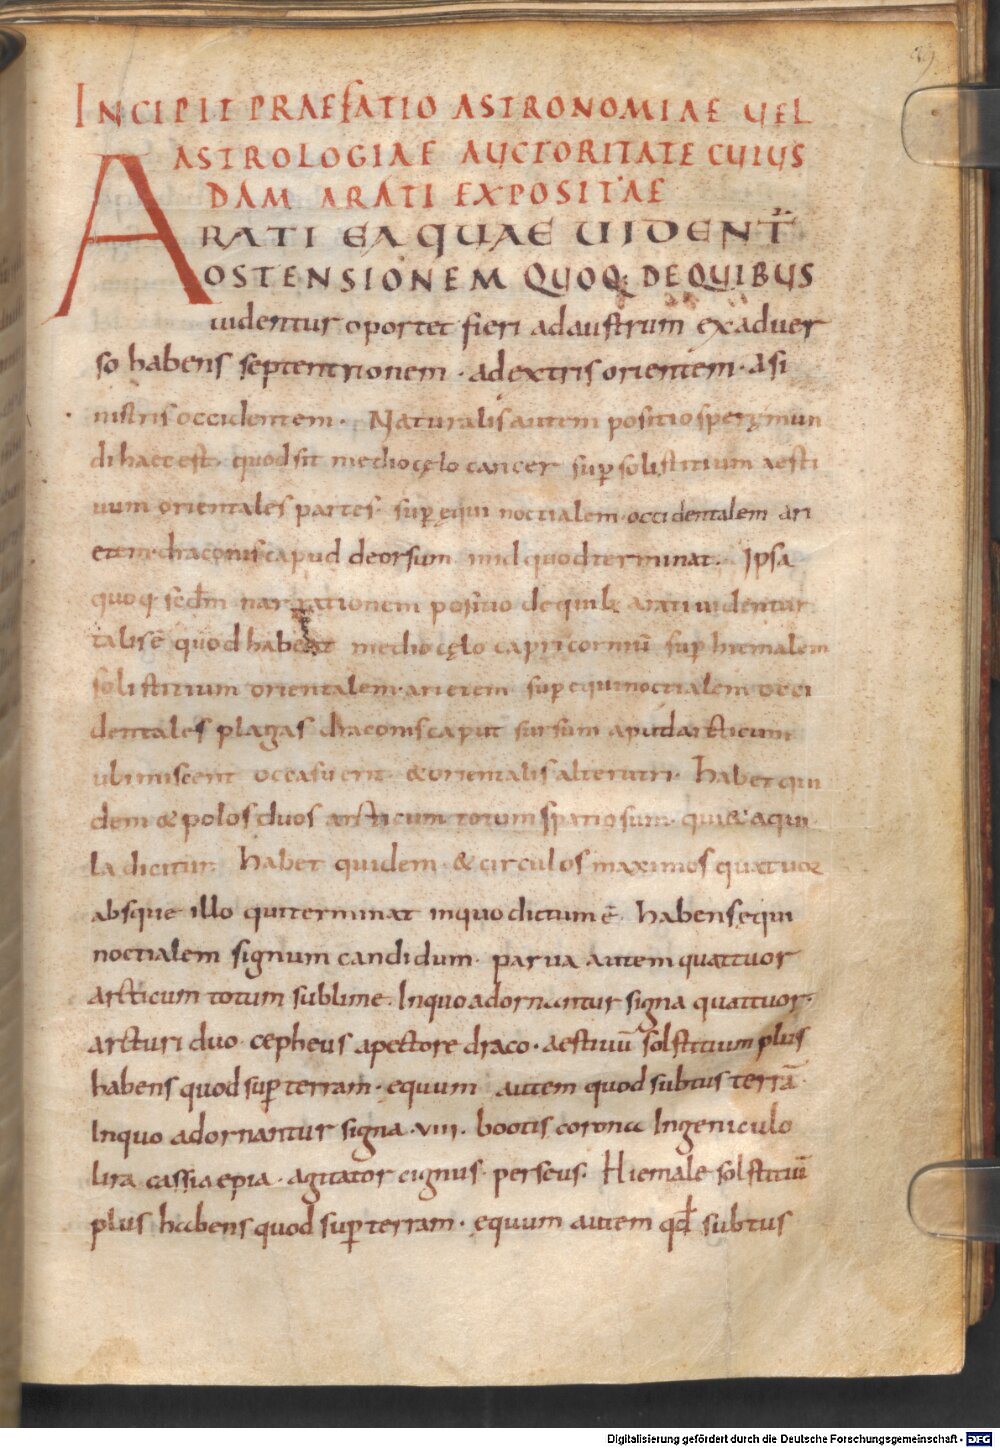 89
INCIPIT PRAEFATIO ASTRONOMIAE UEL
ASTROLOGIAE AUCTORITATE CUIUS
DAM ARATI EXPOSITAE
ARATI EA QUAE UIDENT̄
OSTENSIONEM QUOQ; DE QUIBUS
uidentur oportet fieri ad austrum ex aduer
so habens septentrionem · ad extris orientem · asi
nistris occidentem · Naturalis autem positio sperę mun
di haec est · quod sit medio cęlo cancer sup̄ solistitium aesti
uum orientales partes · sup̄ ęqui noctialem occidentalem ari
etem · draconis capud deorsum inid quod terminat · Ipsa
quoq; sed̄m narrationem positio de quib; arati uidentur
talis ē quod habeat medio cęlo capricornū sup̄ hiemalem
solistitium orientalem · arietem sup̄ equinoctialem occi
dentales plagas draconis caput sursum apud arcticum
ubi miscent occasū erit · & orientalis alterutri · habet qui
dem & polos duos arcticum totum spatiosum · qui & aqui
la dicitur · habet quidem & circulos maximos quatuor
absque illo qui terminat in quo dictum ē · habens equi
noctialem signum candidum · parua autem quattuor
arcticum totum sublime · In quo adornantur signa quattuor ·
arcturi duo · cepheus a pectore draco · aestiuū solstitium plus
habens quod sup̄ terram · equum autem quod subtus terrā ·
In quo adornantur signa · VIII · bootis corona Ingeniculo
lira cassiaepia · agitator cignus · perseus · Hiemale solstitiū
plus habens quod sup̄ terram · equum autem qd̄ subtus
Digitalisierung gefördert durch die Deutsche Forschungsgemeinschaft - DFG